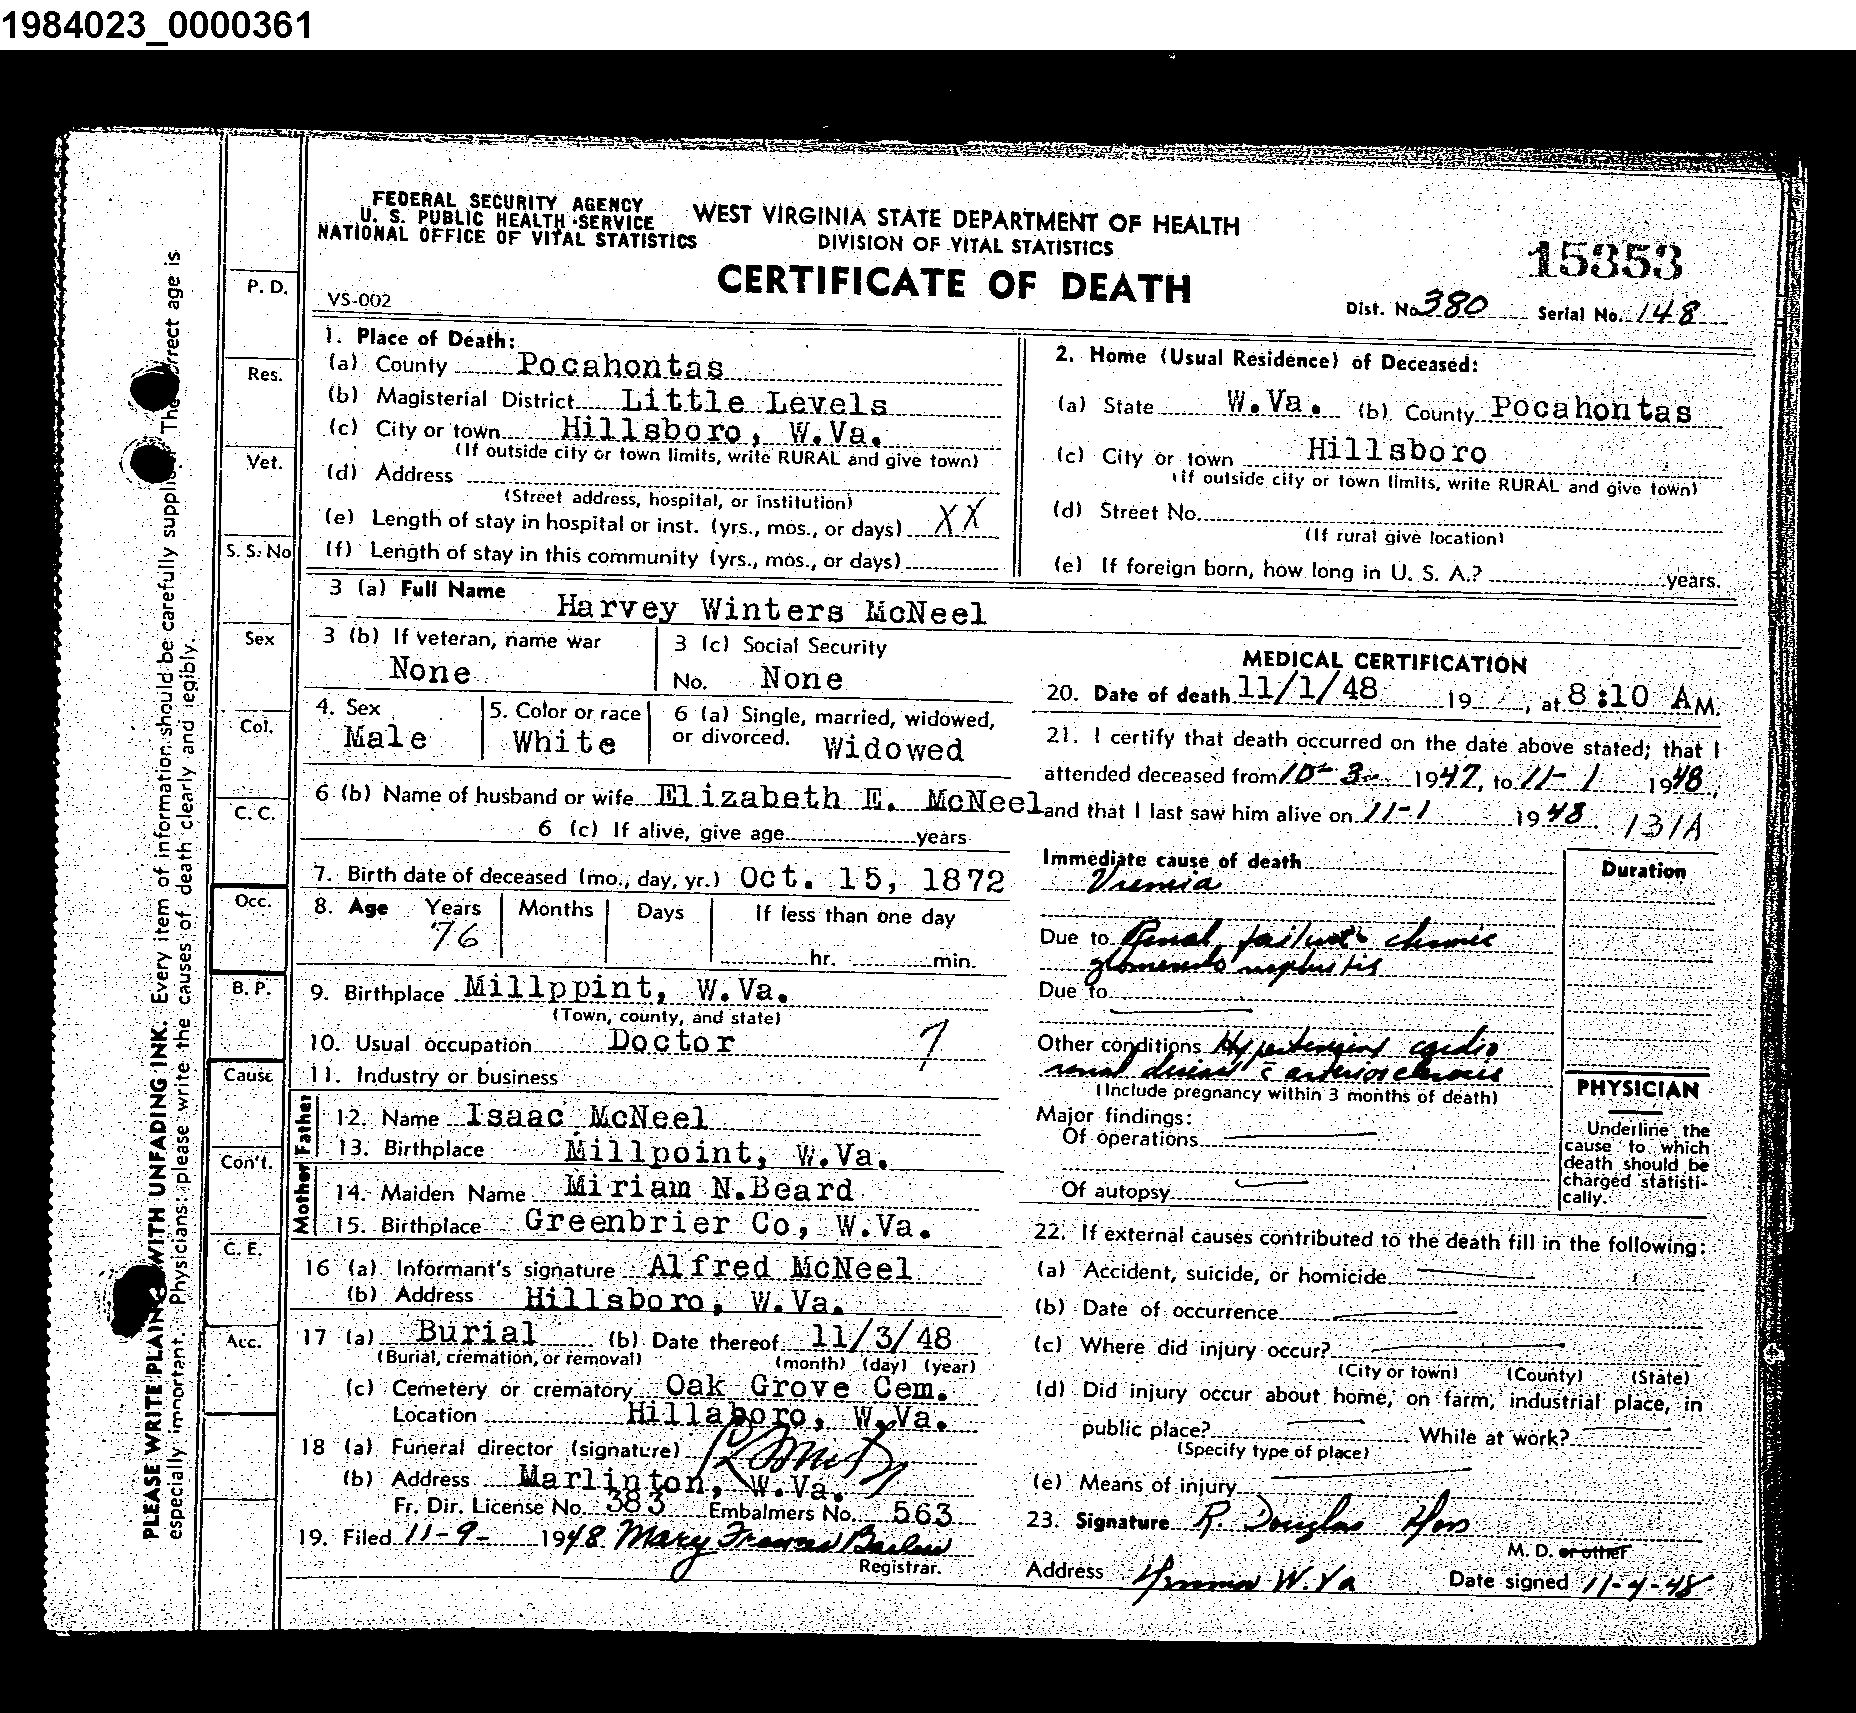 1984023_0000361
FEDERAL SECURITY AGENCY
U. S. PUBLIC HEALTH SERVICE
NATIONAL OFFICE OF VITAL STATISTICS
WEST VIRGINIA STATE DEPARTMENT OF HEALTH
DIVISION OF VITAL STATISTICS
CERTIFICATE OF DEATH
15353
VS-002
Dist. No. 380 Serial No. 148
PLEASE WRITE PLAIN WITH UNFADING INK. Every item of information should be carefully suppli The correct age is
especially important. Physicians: please write the causes of death clearly and legibly.
P. D.
Res.
Vet.
S. S. No
Sex
Col.
C. C.
Occ.
B. P.
Cause
Con't.
C. E.
Acc.
1. Place of Death:
(a) County Pocahontas
(b) Magisterial District Little Levels
(c) City or town Hillsboro, W.Va.
(If outside city or town limits, write RURAL and give town)
(d) Address
(Street address, hospital, or institution)
(e) Length of stay in hospital or inst. (yrs., mos., or days) XX
(f) Length of stay in this community (yrs., mos., or days)
2. Home (Usual Residence) of Deceased:
(a) State W.Va. (b) County Pocahontas
(c) City or town Hillsboro
(If outside city or town limits, write RURAL and give town)
(d) Street No.
(If rural give location)
(e) If foreign born, how long in U. S. A.? years.
3 (a) Full Name Harvey Winters McNeel
3 (b) If veteran, name war
None
3 (c) Social Security
No. None
4. Sex
Male
5. Color or race
White
6 (a) Single, married, widowed,
or divorced. Widowed
6 (b) Name of husband or wife Elizabeth E. McNeel
6 (c) If alive, give age years
7. Birth date of deceased (mo., day, yr.) Oct. 15, 1872
8. Age Years Months Days If less than one day
76 hr. min.
9. Birthplace Millppint, W.Va.
(Town, county, and state)
10. Usual occupation Doctor 7
11. Industry or business
Father
12. Name Isaac McNeel
13. Birthplace Millpoint, W.Va.
Mother
14. Maiden Name Miriam N.Beard
15. Birthplace Greenbrier Co, W.Va.
16 (a) Informant's signature Alfred McNeel
(b) Address Hillsboro, W.Va.
17 (a) Burial (b) Date thereof 11/3/48
(Burial, cremation, or removal) (month) (day) (year)
(c) Cemetery or crematory Oak Grove Cem.
Location Hillaboro, W.Va.
18 (a) Funeral director (signature)
(b) Address Marlinton, W.Va.
Fr. Dir. License No. 383 Embalmers No. 563
19. Filed 11-9- 1948 Mary Frances Barlow
Registrar.
MEDICAL CERTIFICATION
20. Date of death 11/1/48 19 , at 8:10 AM.
21. I certify that death occurred on the date above stated; that I
attended deceased from 10-3- 1947, to 11-1 1948,
and that I last saw him alive on 11-1 1948 131A
Immediate cause of death
Uremia
Due to Renal failure chronic
glomerulo nephritis
Due to
Other conditions Hypertensive cardio
renal disease c arteriosclerosis
(Include pregnancy within 3 months of death)
Major findings:
Of operations
Of autopsy
Duration
PHYSICIAN
Underline the
cause to which
death should be
charged statisti-
cally.
22. If external causes contributed to the death fill in the following:
(a) Accident, suicide, or homicide
(b) Date of occurrence
(c) Where did injury occur?
(City or town) (County) (State)
(d) Did injury occur about home, on farm, industrial place, in
public place? While at work?
(Specify type of place)
(e) Means of injury
23. Signature R. Douglas
M. D. or other
Address W.Va Date signed 11-4-48